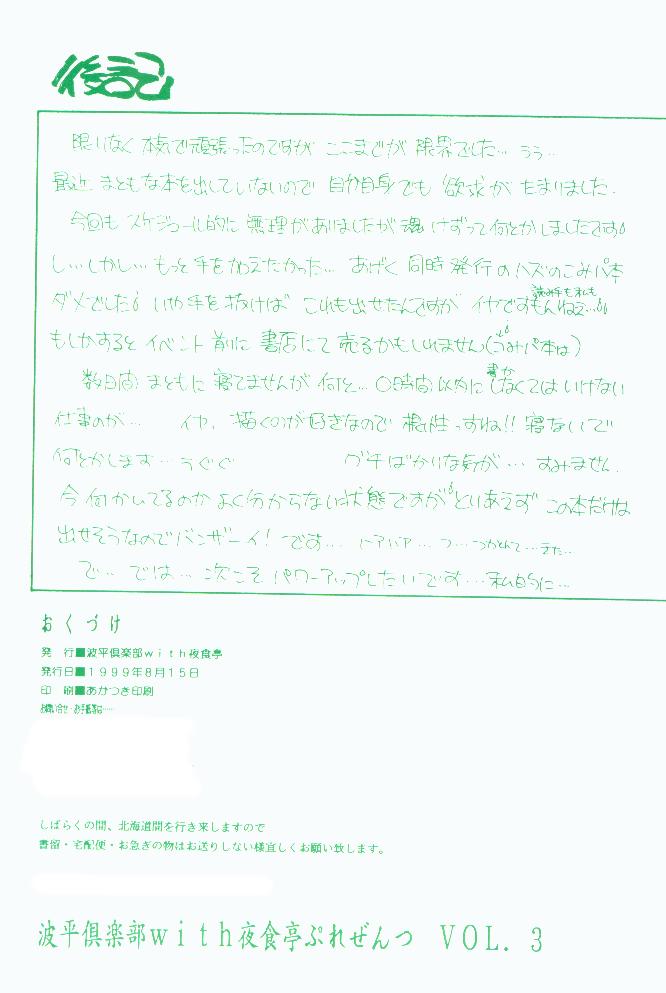 後記
限りなく 本気で頑張ったのですが ここまでが 限界でした… うぅ…
最近 まともな本を出していないので 自分自身でも 欲求が たまりました.
今回も スケジュール的に 無理がありましたが 魂 けずって何とかしましたです
し…しかし… もっと手をかえたかった… あげく 同時発行のハズのこみパ本
ダメでした いや手を抜けば これも出せたんですが イヤですもんねぇ…
読み手も私も
もしかすると イベント前に 書店にて 売るかもしれません(こみパ本は)
数日間 まともに 寝てませんが 何と… ○時間以内に しなくては いけない
書か
仕事のが… イヤ, 描くのが好きなので 根性っすね!! 寝ないで
何とかします… うぐぐ グチばかりな気が… すみません.
今 何かいてるのか よく分からない状態ですが とりあえず この本だけは
出せそうなのでバンザーイ! です…
で… では… 次こそ パワーアップしたいです… 私的に…
おくづけ
発　行■波平倶楽部ｗｉｔｈ夜食亭
発行日■１９９９年８月１５日
印　刷■あかつき印刷
しばらくの間、北海道間を行き来しますので
書留・宅配便・お急ぎの物はお送りしない様宜しくお願い致します。
波平倶楽部ｗｉｔｈ夜食亭ぷれぜんつ　ＶＯＬ．３